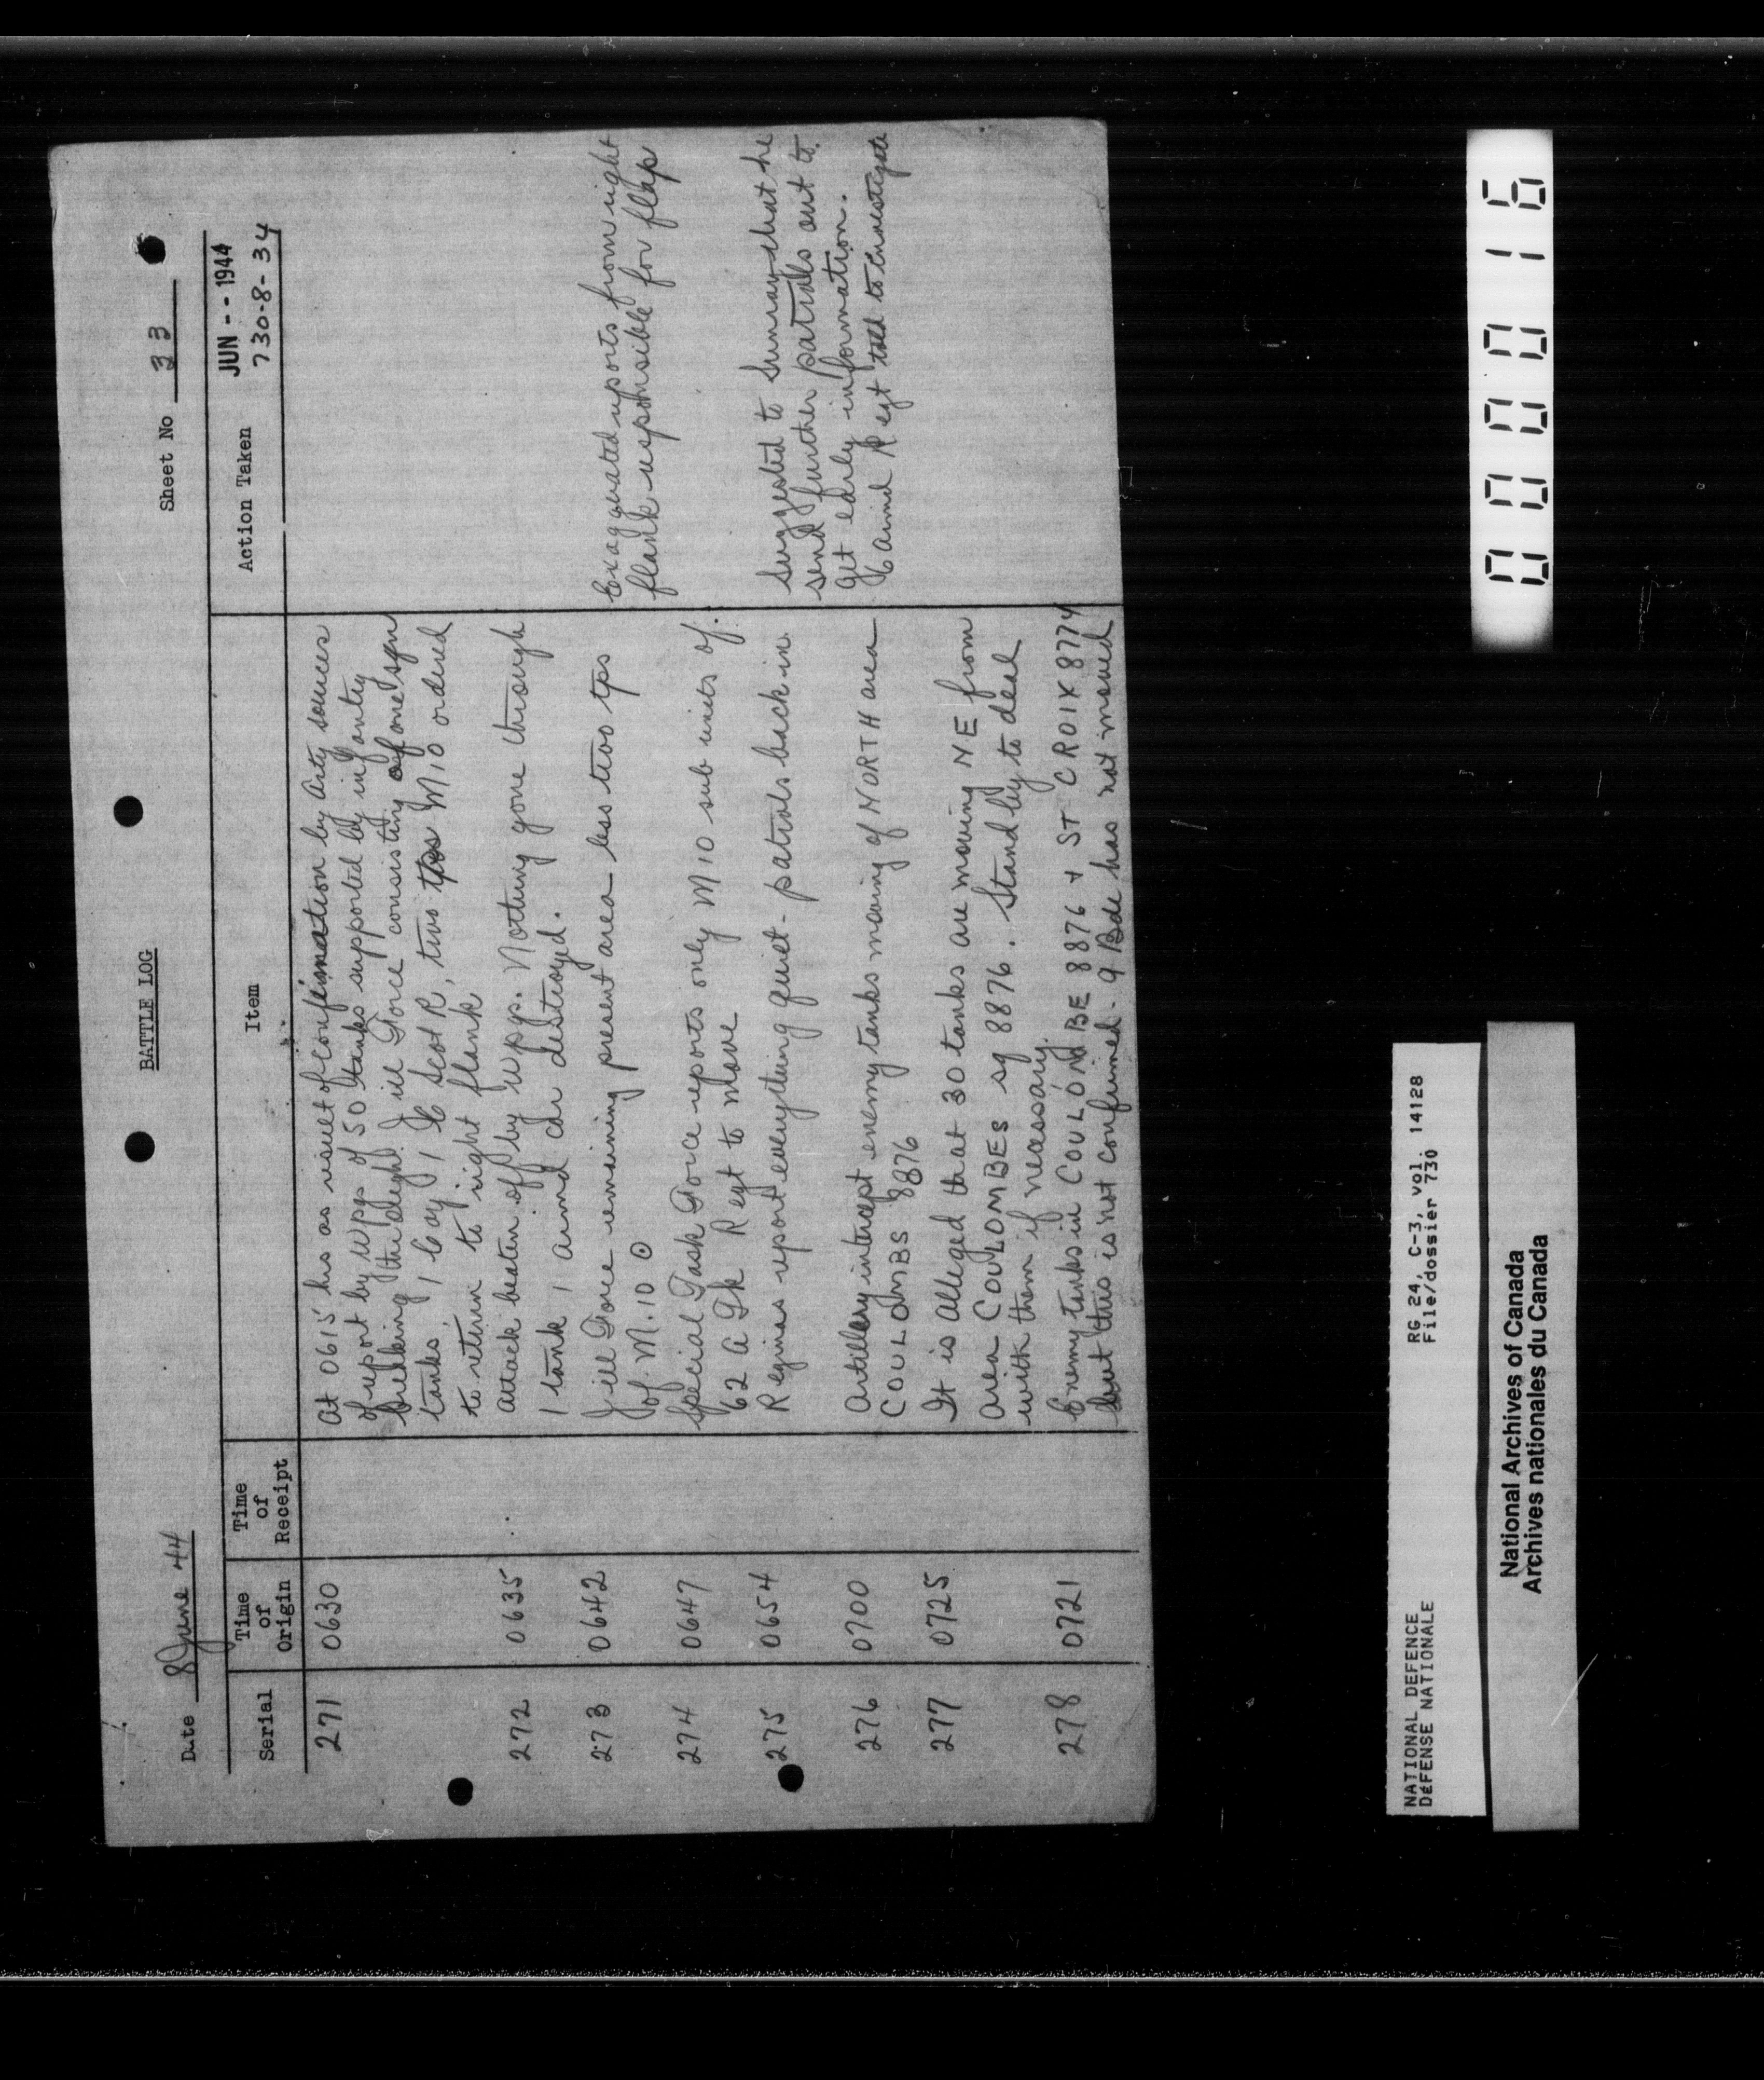 BATTLE LOG
Date 8 June 44
Sheet No 33
JUN - - 1944
730-8-34
Serial
Time of Origin
Time of Receipt
Item
Action Taken
271 0630 At 0615 hrs as result of confirmation by Arty sources
of report by Wpgs of 50 tanks supported by infantry
Jill Force consisting of one sqn
tanks, 1 Coy 1 C Scot R, two tps M10 ordered
to return to right flank
272 0635 Attack beaten off by Wpgs. Nothing gone through
1 tank 1 armd car destroyed.
273 0642 Jill Force remaining present area less two tps
of M.10 ⊙
Exaggerated reports from right
flank responsible for flap
274 0647 Special Task Force reports only M10 sub units of
62 A Tk Regt to move
275 0654 Reginas report everything quiet - patrols back in
Suggested to Sunray that he
send further patrols out to
get early information.
276 0700 Artillery intercept enemy tanks moving of NORTH area
COULOMBS 8876
6 Armd Regt told to investigate
277 0725 It is alleged that 30 tanks are moving NE from
area COULOMBES sq 8876. Stand by to deal
with them if necessary.
278 0721 Enemy tanks in COULOMBE 8876 & ST CROIX 8774
but this is not confirmed. 9 Bde has not moved
0000016
NATIONAL DEFENCE
DÉFENSE NATIONALE
RG 24, C-3, vol. 14128
File/dossier 730
National Archives of Canada
Archives nationales du Canada